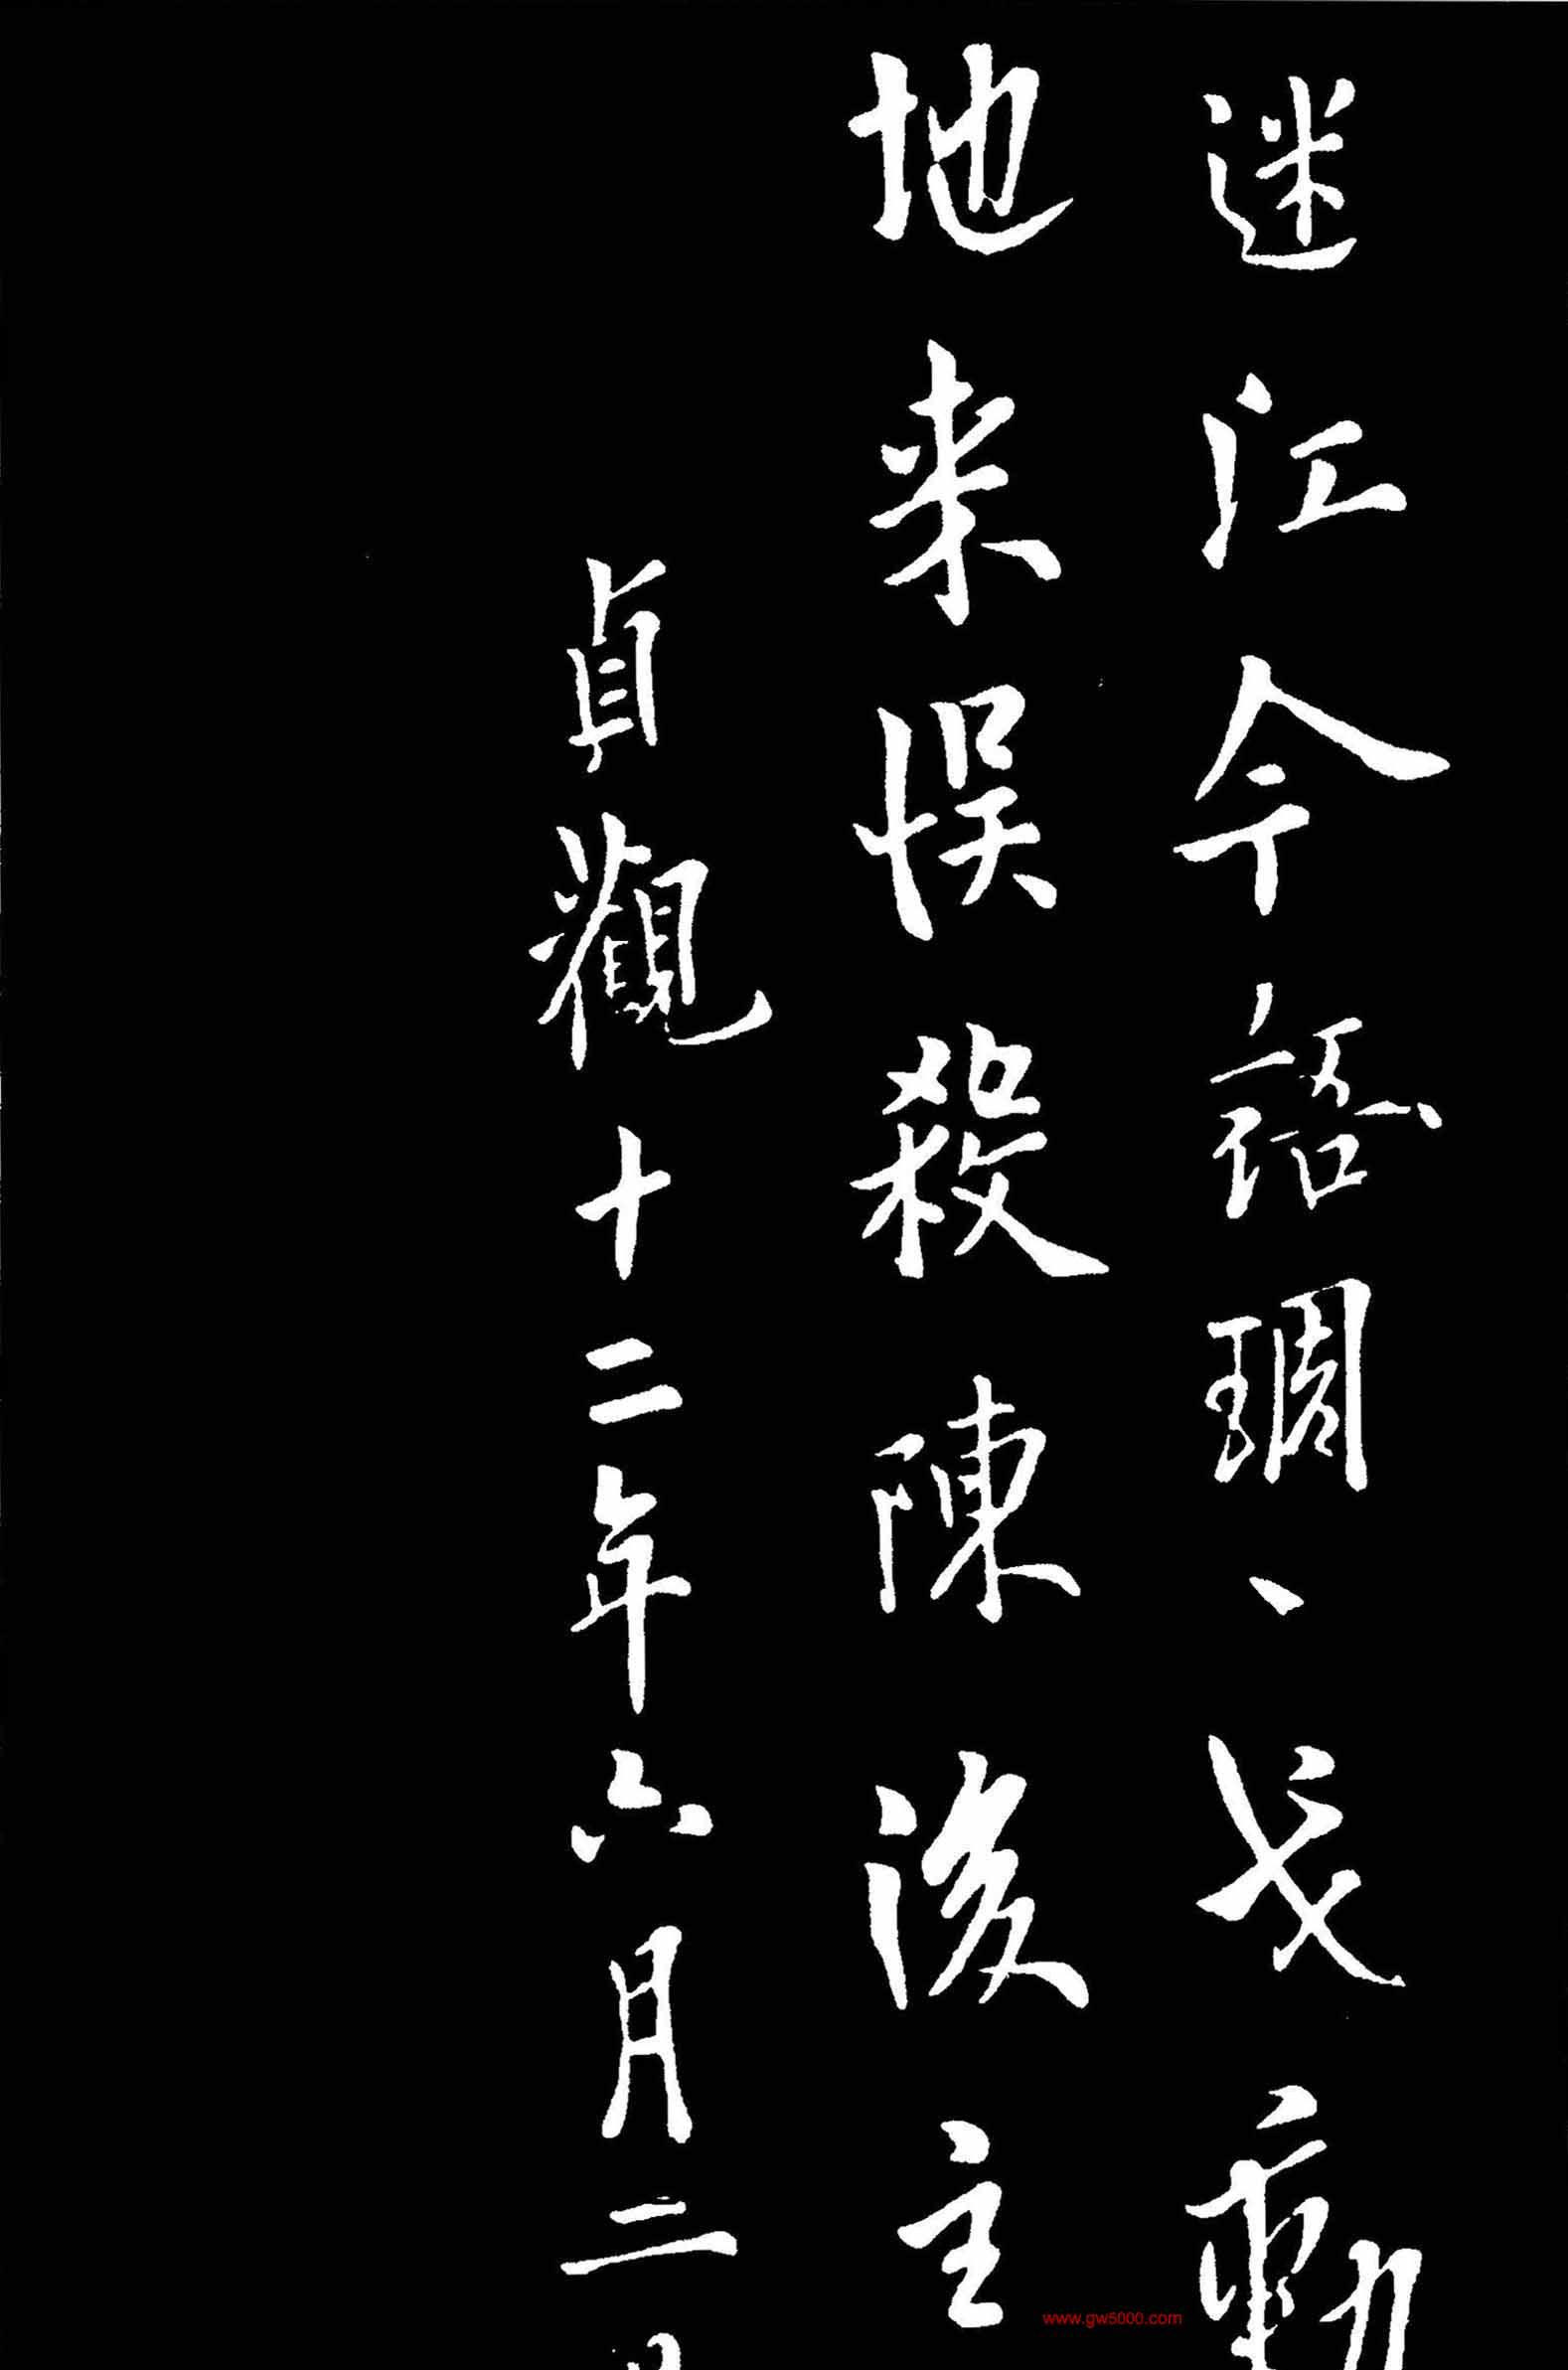 迷江今語琱、戈動
地来悮殺陳後主
貞觀十二年六月二
www.gw5000.com